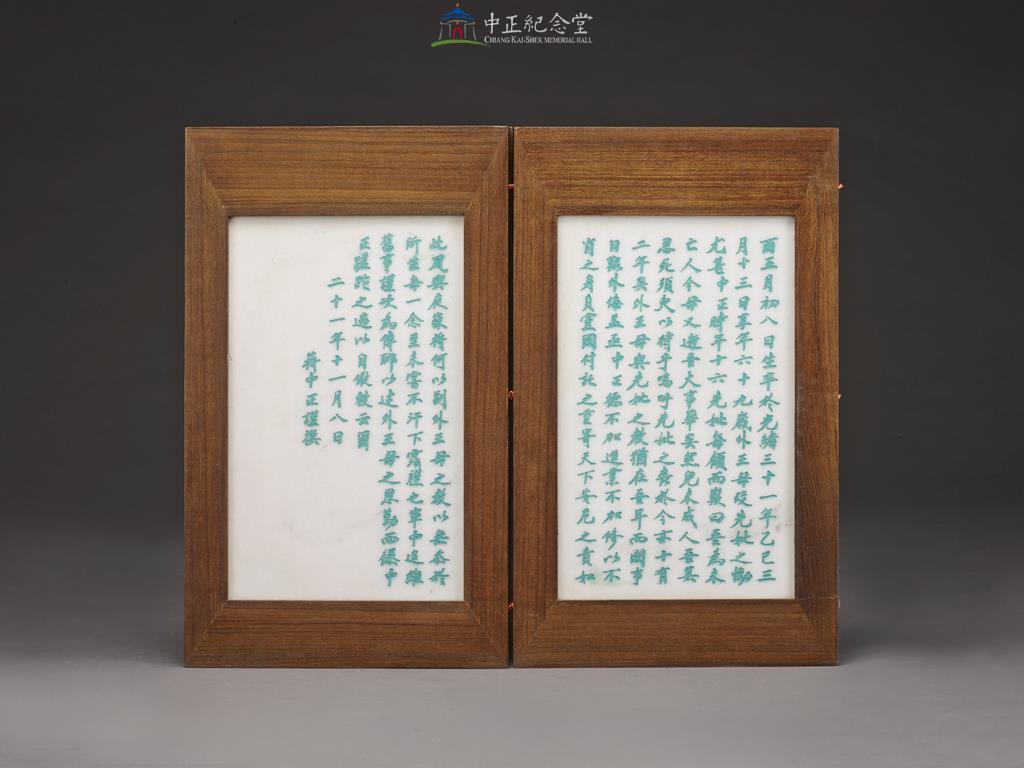 中正紀念堂
CHIANG KAI-SHEK MEMORIAL HALL
酉五月初八日生卒於光緒三十一年乙巳三
月十三日享年六十九歲外王母歿先妣之慟
尤甚中正時年十六先妣每顧而歎曰吾為未
亡人今母又逝吾大事畢矣然兒未成人吾其
忍死須臾以待乎嗚呼先妣之喪於今亦十有
二年矣外王母與先妣之教猶在吾耳而國事
日艱外侮孟亟中正德不加進業不加修以不
肖之身負黨國付託之重寄天下安危之責如
此夙興夜寐將何以副外王母之教以無忝於
所生每一念至未嘗不汗下霑襟也軍中追維
舊事謹次為傳聊以述外王母之恩勤而綴中
正蹉跎之過以自儆焉云爾
二十一年十一月八日
蔣中正謹撰